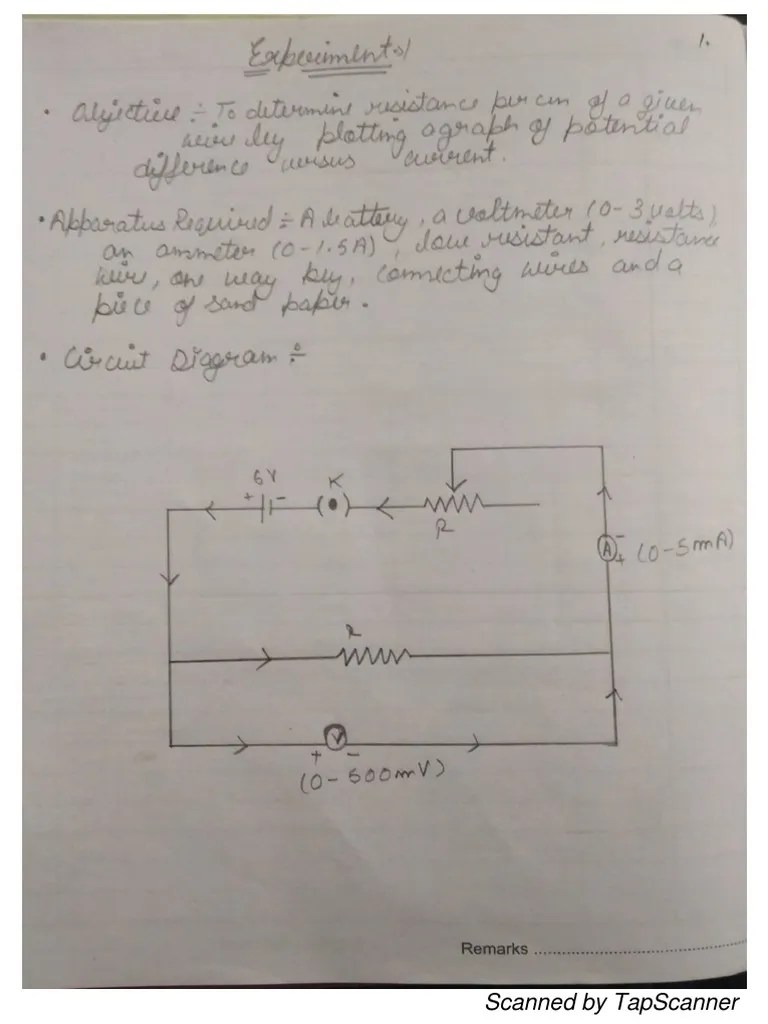 Experiment-1
1.
• Objective ÷ To determine resistance per cm of a given
wire by plotting a graph of potential
difference versus current.
• Apparatus Required ÷ A battery, a voltmeter (0-3 volts),
an ammeter (0-1.5A), low resistant, resistance
wire, one way key, connecting wires and a
piece of sand paper.
• Circuit Diagram ÷
6V
K
+ -
(•)
R
-
A
+ (0-5mA)
r
V
+ -
(0-500mV)
Remarks
Scanned by TapScanner